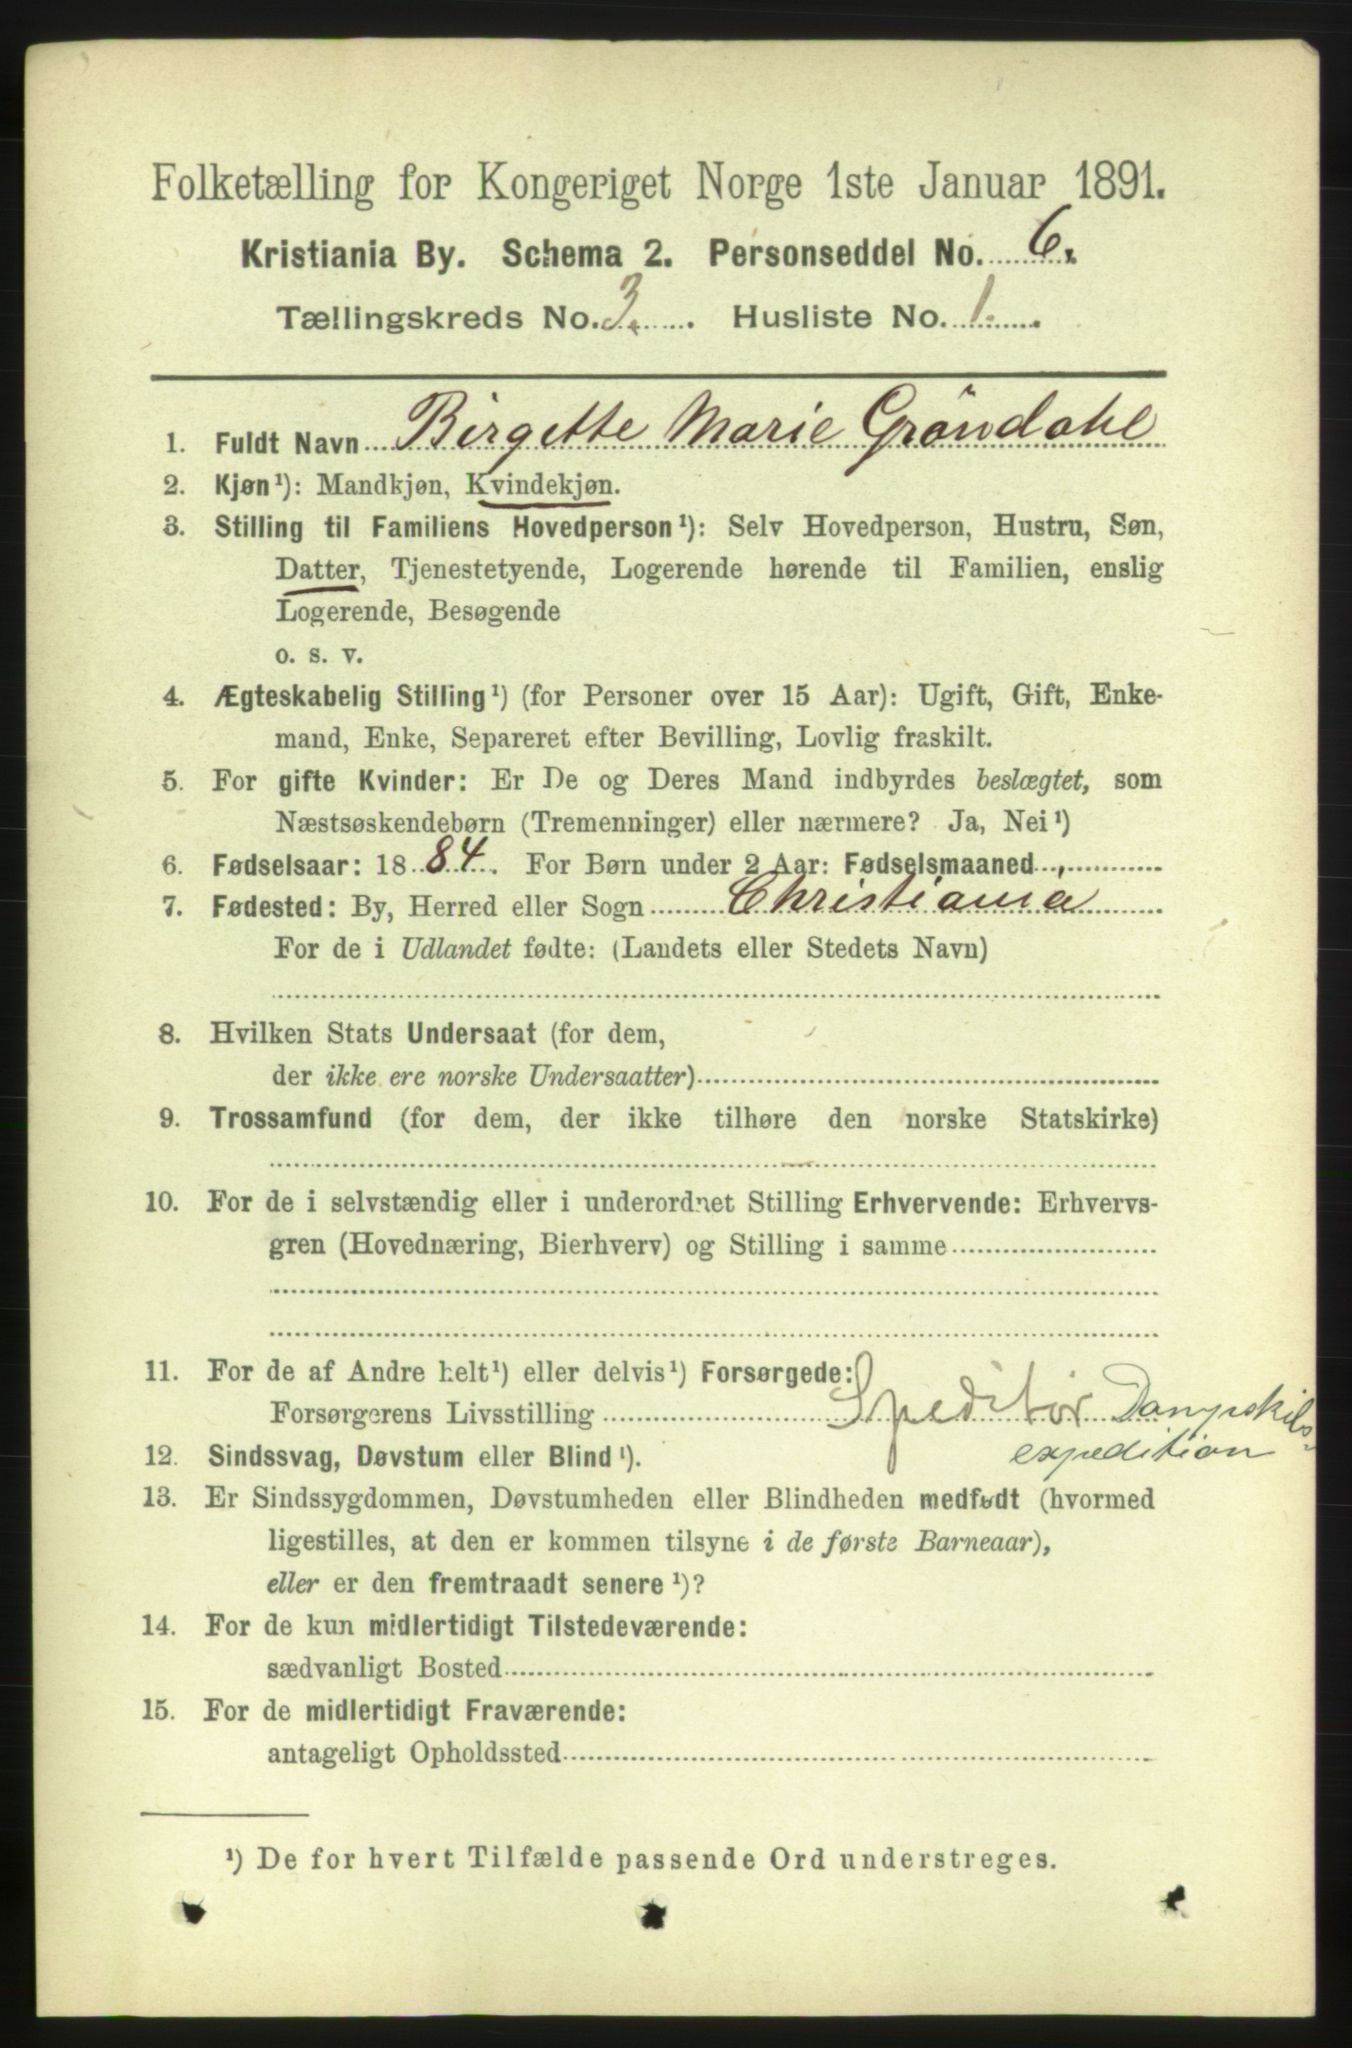 Folketælling for Kongeriget Norge 1ste Januar 1891.
Kristiania By. Schema 2. Personseddel No. 6.
Tællingskreds No. 3. Husliste No. 1.
1. Fuldt Navn Birgette Marie Gröndahl
2. Kjøn¹): Mandkjøn, Kvindekjøn.
3. Stilling til Familiens Hovedperson¹): Selv Hovedperson, Hustru, Søn,
Datter, Tjenestetyende, Logerende hørende til Familien, enslig
Logerende, Besøgende
o. s. v.
4. Ægteskabelig Stilling¹) (for Personer over 15 Aar): Ugift, Gift, Enke-
mand, Enke, Separeret efter Bevilling, Lovlig fraskilt.
5. For gifte Kvinder: Er De og Deres Mand indbyrdes beslægtet, som
Næstsøskendebørn (Tremenninger) eller nærmere? Ja, Nei¹)
6. Fødselsaar: 1884. For Børn under 2 Aar: Fødselsmaaned
7. Fødested: By, Herred eller Sogn Christiania
For de i Udlandet fødte: (Landets eller Stedets Navn)
8. Hvilken Stats Undersaat (for dem,
der ikke ere norske Undersaatter)
9. Trossamfund (for dem, der ikke tilhøre den norske Statskirke)
10. For de i selvstændig eller i underordnet Stilling Erhvervende: Erhvervs-
gren (Hovednæring, Bierhverv) og Stilling i samme
11. For de af Andre helt¹) eller delvis¹) Forsørgede:
Forsørgerens Livsstilling Speditör Dampskibs-
expedition
12. Sindssvag, Døvstum eller Blind¹).
13. Er Sindssygdommen, Døvstumheden eller Blindheden medfødt (hvormed
ligestilles, at den er kommen tilsyne i de første Barneaar),
eller er den fremtraadt senere¹)?
14. For de kun midlertidigt Tilstedeværende:
sædvanligt Bosted
15. For de midlertidigt Fraværende:
antageligt Opholdssted
¹) De for hvert Tilfælde passende Ord understreges.